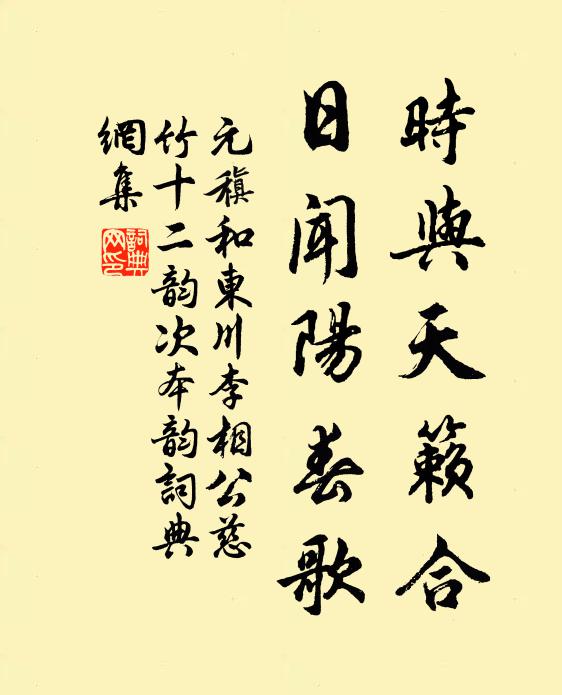 時與天籟合
日聞陽春歌
元稹和東川李相公慈
竹十二韵次本韵詞典
網集
詞典網印